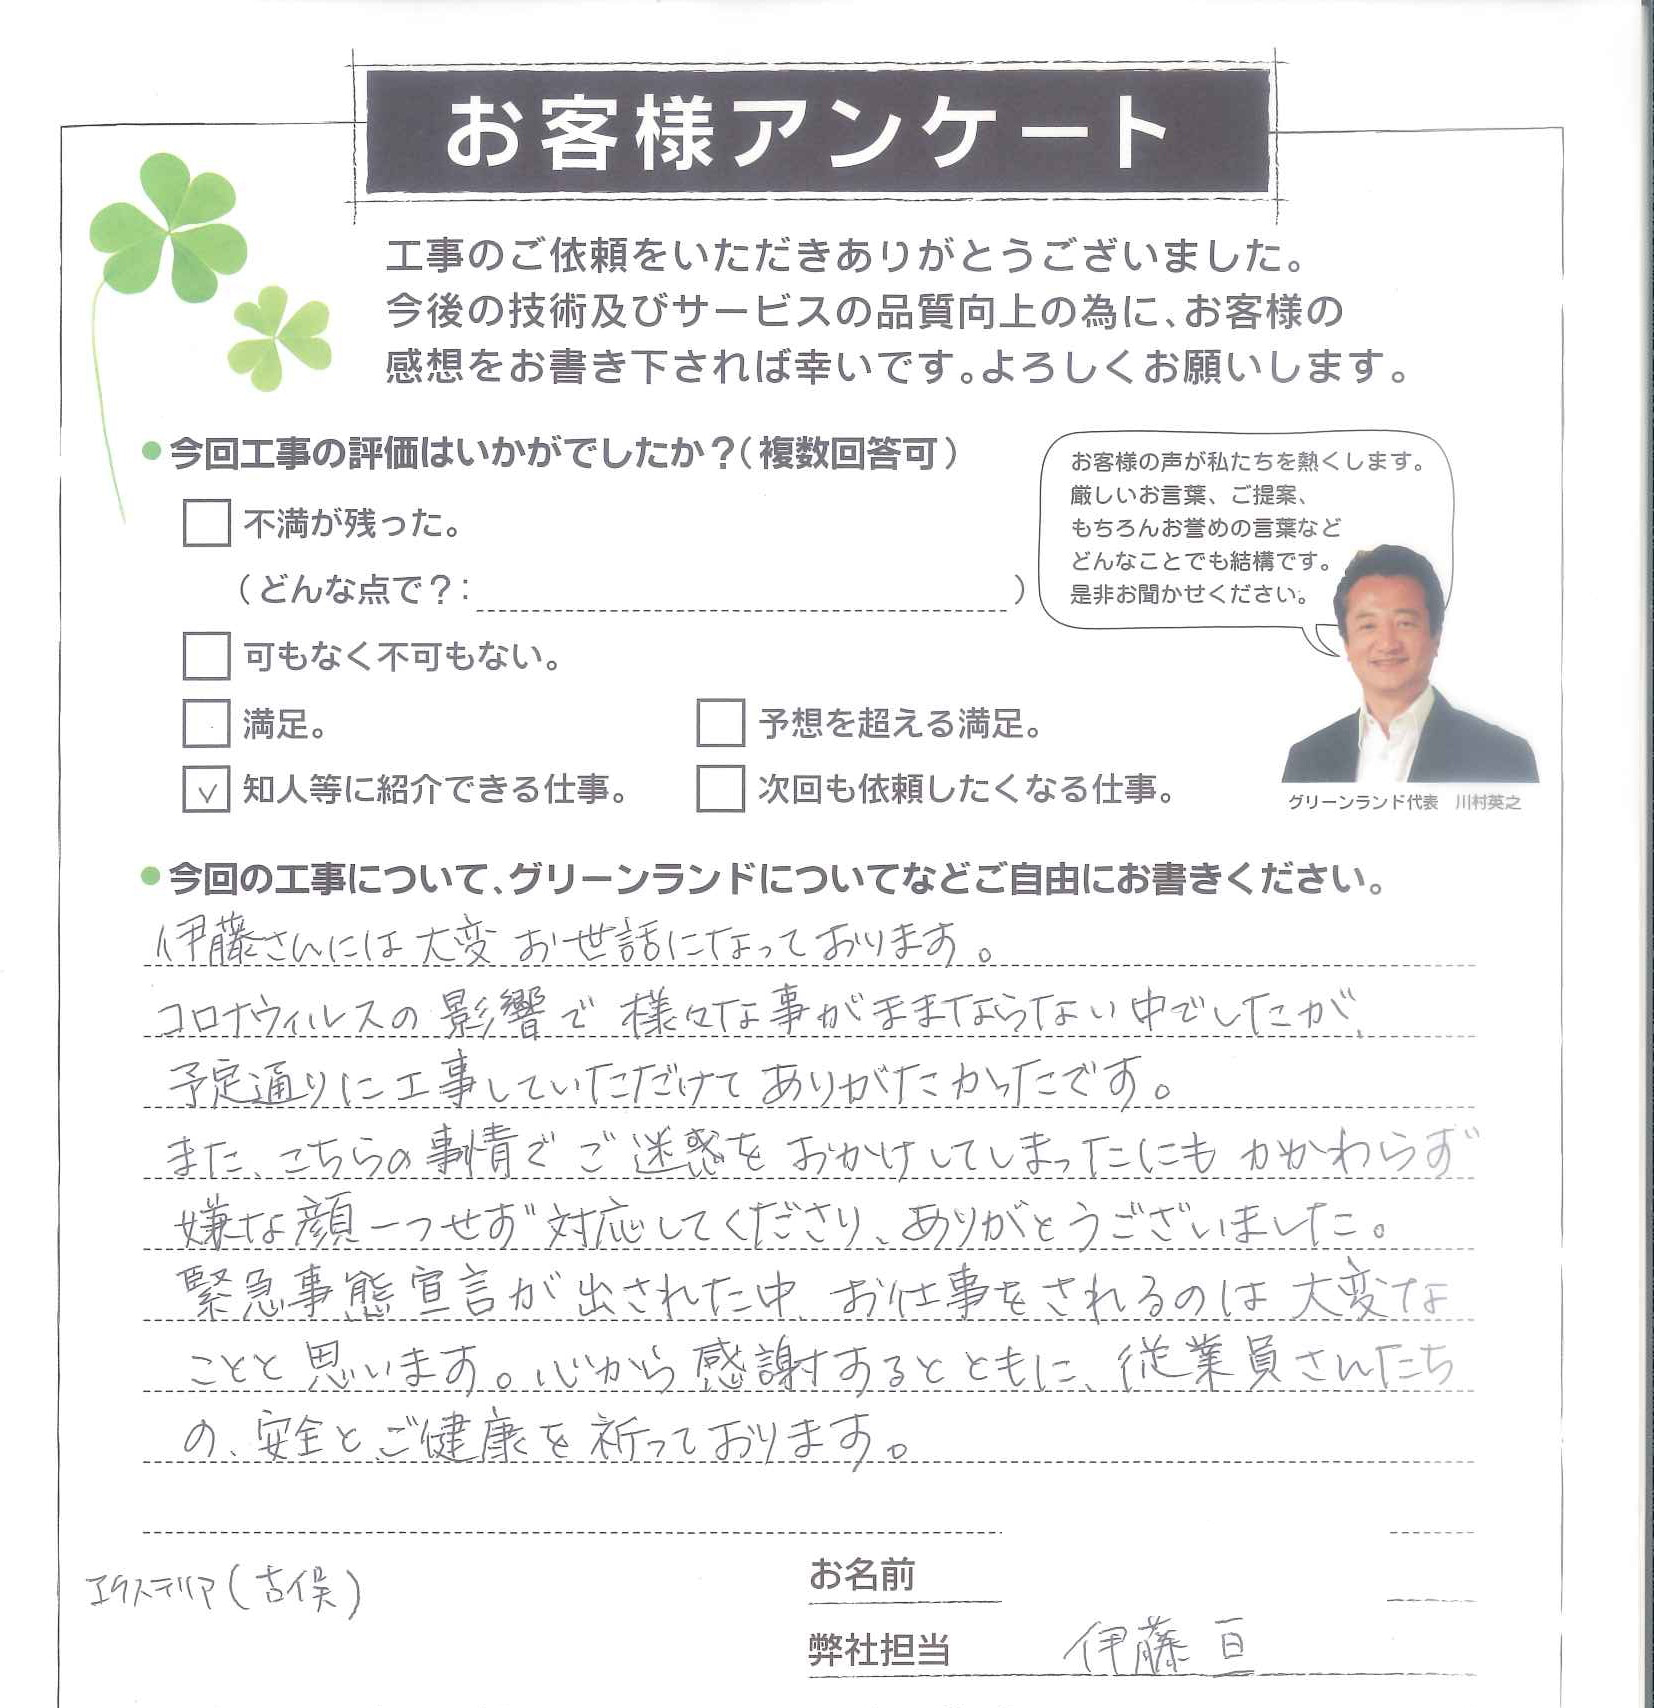 お客様アンケート
工事のご依頼をいただきありがとうございました。
今後の技術及びサービスの品質向上の為に、お客様の
感想をお書き下されば幸いです。よろしくお願いします。
今回工事の評価はいかがでしたか？（複数回答可）
不満が残った。
（どんな点で？：　）
可もなく不可もない。
満足。
予想を超える満足。
知人等に紹介できる仕事。
次回も依頼したくなる仕事。
お客様の声が私たちを熱くします。
厳しいお言葉、ご提案、
もちろんお誉めの言葉など
どんなことでも結構です。
是非お聞かせください。
グリーンランド代表　川村英之
今回の工事について、グリーンランドについてなどご自由にお書きください。
伊藤さんには大変お世話になっております。
コロナウィルスの影響で様々な事がままならない中でしたが、
予定通りに工事していただけてありがたかったです。
また、こちらの事情でご迷惑をおかけしてしまったにもかかわらず
嫌な顔一つせず対応してくださり、ありがとうございました。
緊急事態宣言が出された中、お仕事をされるのは大変な
ことと思います。心から感謝するとともに、従業員さんたち
の、安全とご健康を祈っております。
エクステリア(吉俣)
お名前
弊社担当　伊藤 亘